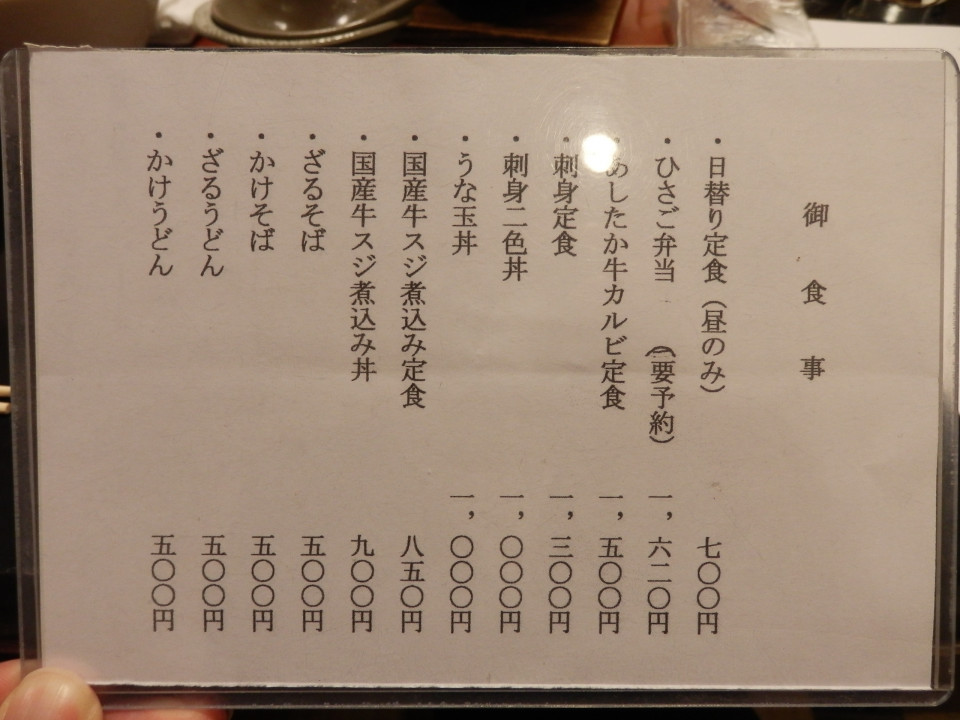 御食事
・日替り定食(昼のみ) 七〇〇円
・ひさご弁当 (要予約) 一,六二〇円
・あしたか牛カルビ定食 一,五〇〇円
・刺身定食 一,三〇〇円
・刺身二色丼 一,〇〇〇円
・うな玉丼 一,〇〇〇円
・国産牛スジ煮込み定食 八五〇円
・国産牛スジ煮込み丼 九〇〇円
・ざるそば 五〇〇円
・かけそば 五〇〇円
・ざるうどん 五〇〇円
・かけうどん 五〇〇円